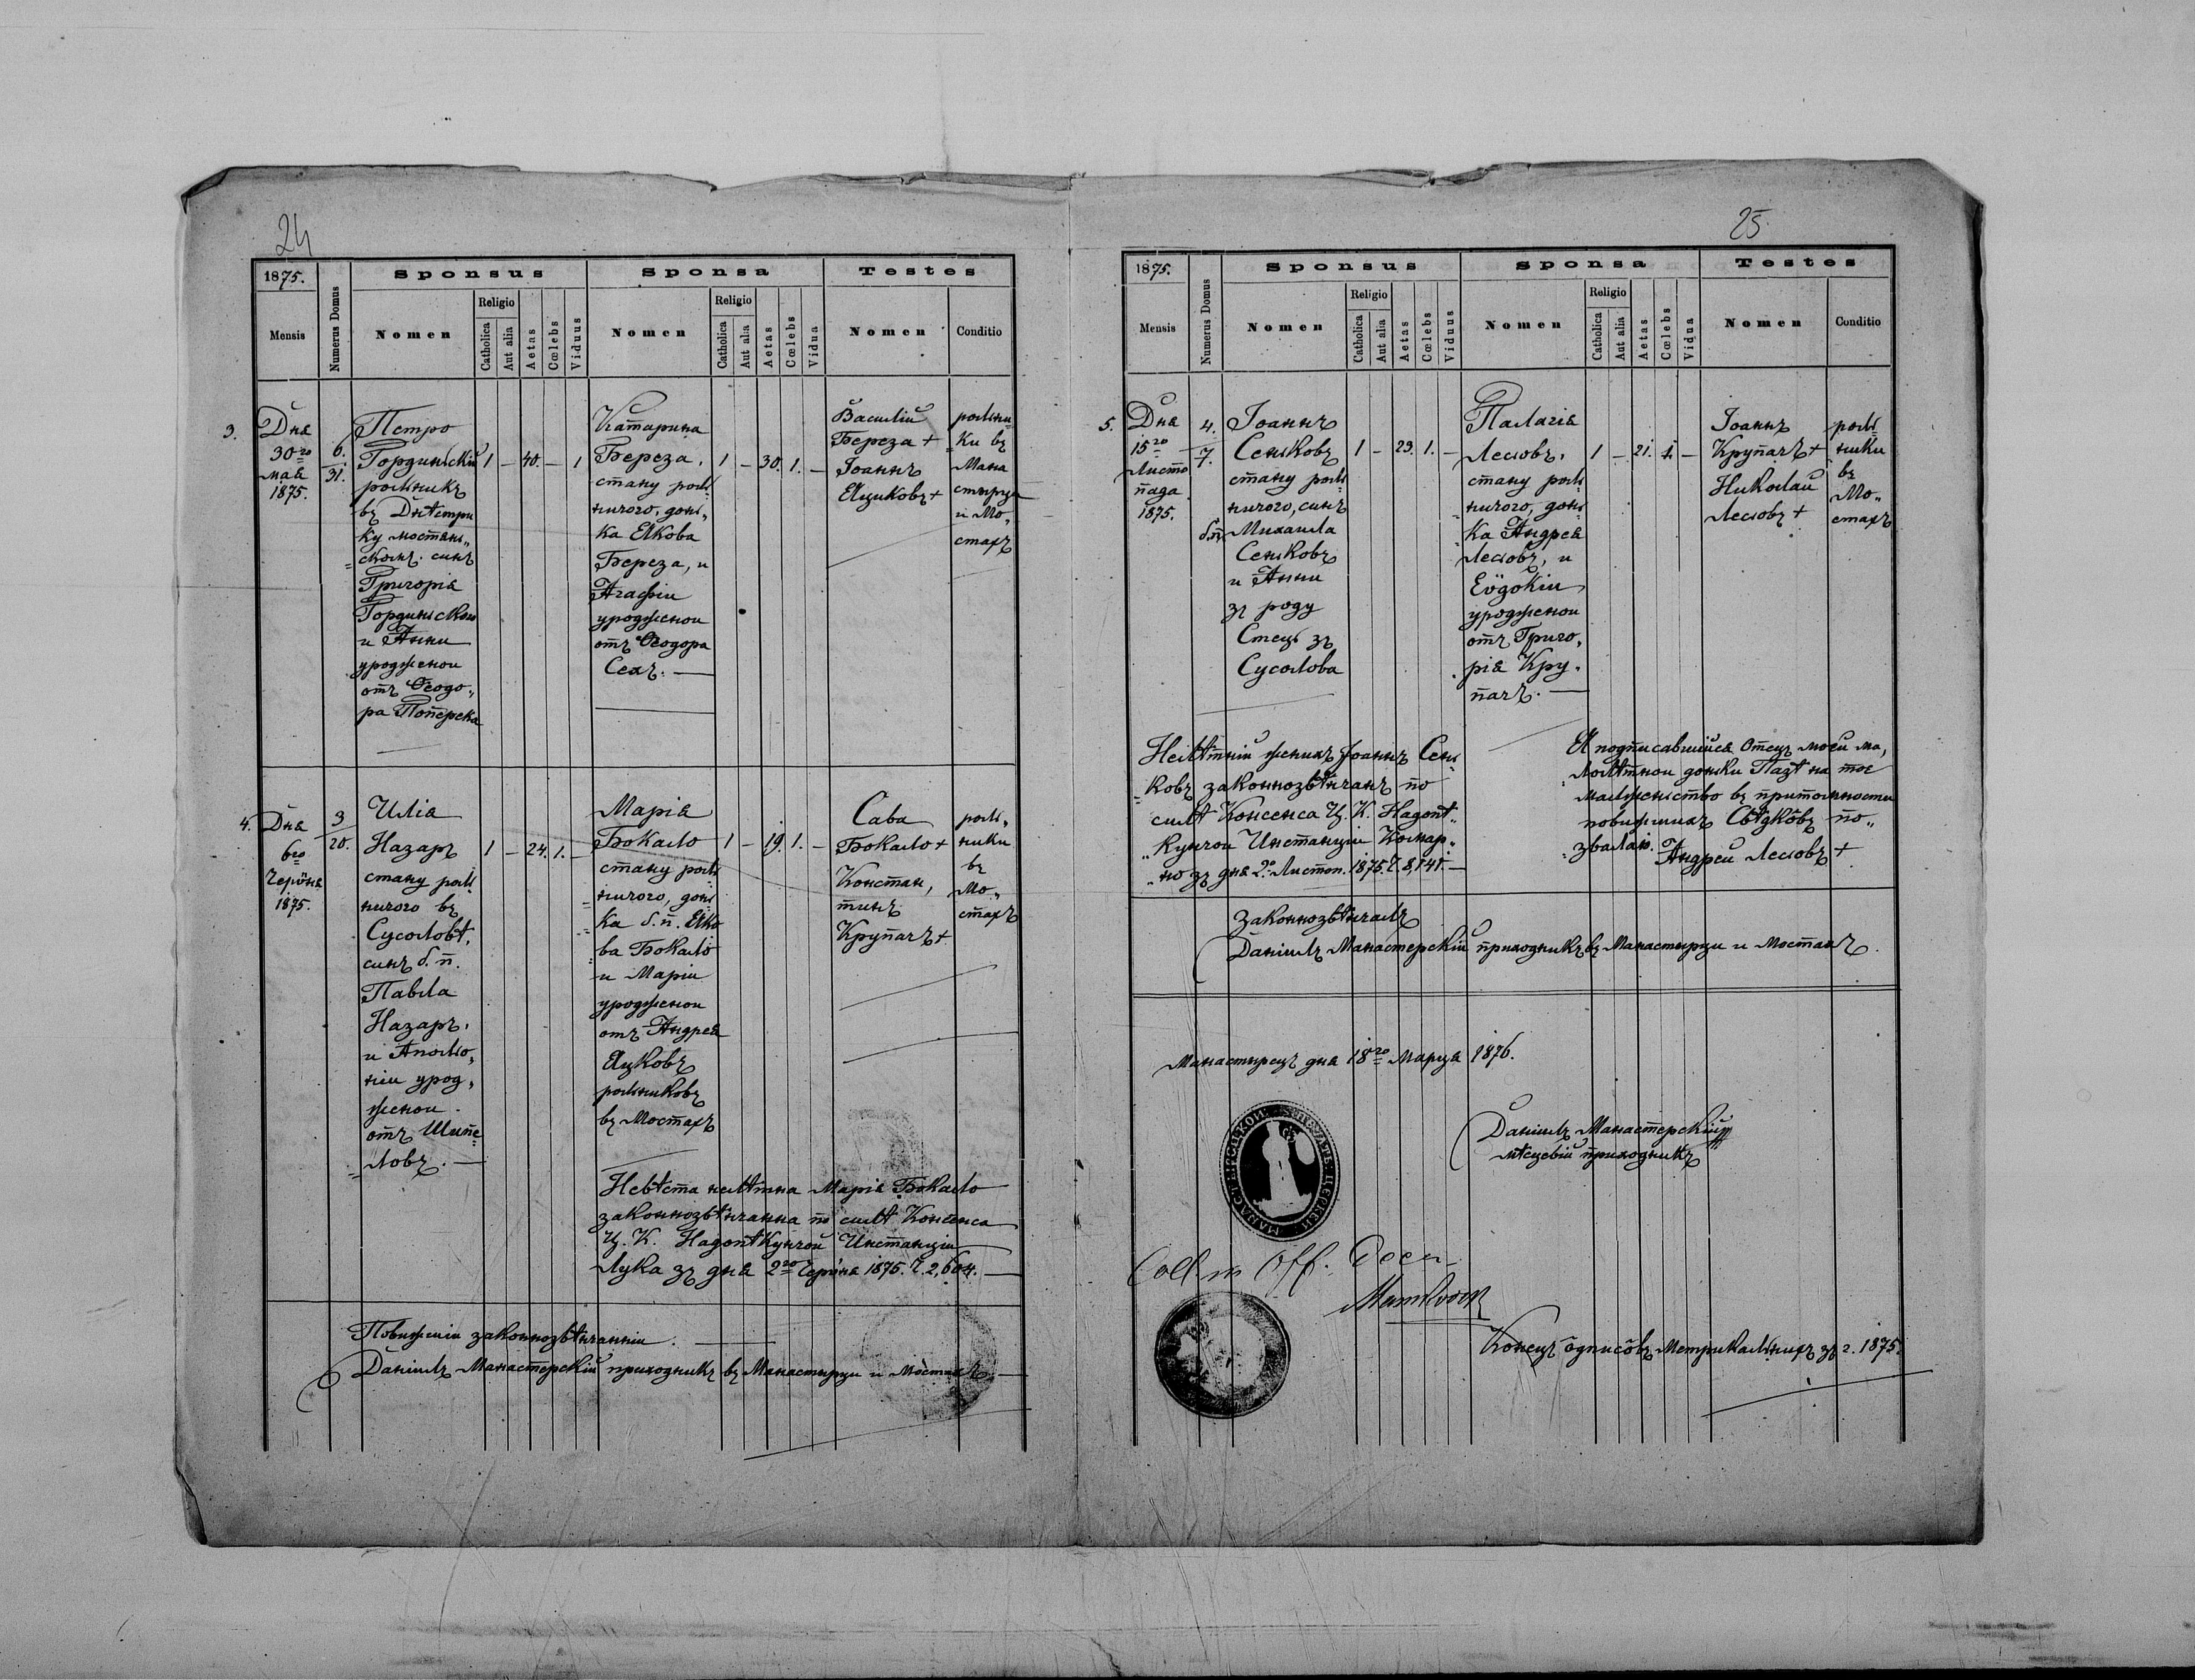 24
1875.
Sponsus
Sponsa
Testes
Mensis
Numerus Domus
Nomen
Religio
Catholica
Aut alia
Aetas
Cœlebs
Viduus
Nomen
Religio
Catholica
Aut alia
Aetas
Cœlebs
Vidua
Nomen
Conditio
3.
Дня
30го
мая
1875.
6.
31.
Петро
Гординьскій
рольникъ
въ Днѣстри
ку мостень„
„скомъ. синъ
Григорія
Гординьского
и Анни
урожденои
отъ Ѳеодо„
ра Поперека
1 – 40. – 1
Катарина
Береза.
стану роль
ничого, донь„
ка Яцкова
Береза, и
Агафіи
урожденои
отъ Ѳеодора
Сенъ. —
1 – 30. 1. –
Василій
Береза +
Іоаннъ
Яциковъ +
рольни
ки въ
Мана
стырци
и Мо„
стахъ
4.
Дня
6го
Червня
1875.
3
20.
Илія
Назаръ
стану роль
ничого въ
Сусоловѣ,
синъ б. п.
Павла
Назаръ.
и Аполло„
ніи урод„
женои
отъ Шипе„
„ловъ. —
1 – 24. 1. –
Марія
Бокало
стану роль
ничого, донь
ка б. п. Яко
ва Бокало
и Маріи
урожденои
отъ Андрея
Яцковъ
рольниковъ
въ Мостахъ
1 – 19. 1. –
Сава
Бокало +
Констан„
тинъ
Крупачъ +
роль„
ники
въ
Мо„
стахъ
Невѣста нелѣтна Марія Бокало
законнозвѣнчанна по силѣ Консенса
Ц. К. Надопѣкунчои Инстанціи
Лука зъ дня 2го Червня 1875. Ч. 2,604. —
Повижшіи законнозвѣнчанніи. —
Даніилъ Манастерскій приходникъ въ Манастырци и Мостахъ —
25.
1875.
Sponsus
Sponsa
Testes
Mensis
Numerus Domus
Nomen
Religio
Catholica
Aut alia
Aetas
Cœlebs
Viduus
Nomen
Religio
Catholica
Aut alia
Aetas
Cœlebs
Vidua
Nomen
Conditio
5.
Дня
15го
Листо
пада
1875.
4.
7.
Іоаннъ
Сеньковъ
стану роль
ничого, синъ
б.п. Михаила
Сеньковъ
и Анни
зъ роду
Стець зъ
Сусолова
1 – 23. 1. –
Палагія
Лесювъ.
стану роль
ничого, донь
ка Андрея
Лесювъ, и
Евдокіи
урожденои
отъ Григо„
рія Кру„
пачъ. —
1 – 21. 1. –
Іоаннъ
Крупачъ +
Николай
Лесювъ +
роль
ники
въ
Мо„
стахъ
Нелѣтній женихъ Іоаннъ Сень
ковъ законнозвѣнчанъ по
силѣ Консенса Ц. К. Надопѣ„
„кунчои Инстанціи Комар„
„но зъ дня 2го Листоп. 1875. Ч. 8,141. —
Я подписавшійся Отецъ моей ма„
лолѣтнои доньки Пазѣ на тое
малженьство въ притомности
повижшихъ Свѣдкôвъ по„
„зваляю. Андрей Лесювъ +
Законнозвѣнчалъ
Даніилъ Манастерскій приходникъ въ Манастырци и Мостахъ.
Манастырець дня 18го Марця 1876.
Даніилъ Манастерскій
мѣсцевій приходникъ
Coll. in Off. Decan.
Конець ôдписôвъ Метрикальнихъ зъ г. 1875.